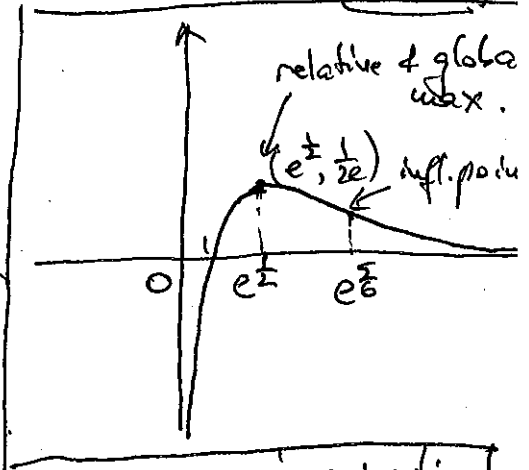 relative & globa
max.
(e^{\frac{1}{2}}, \frac{1}{2e})
infl. poin
1
0 e^{\frac{1}{2}} e^{\frac{5}{6}}